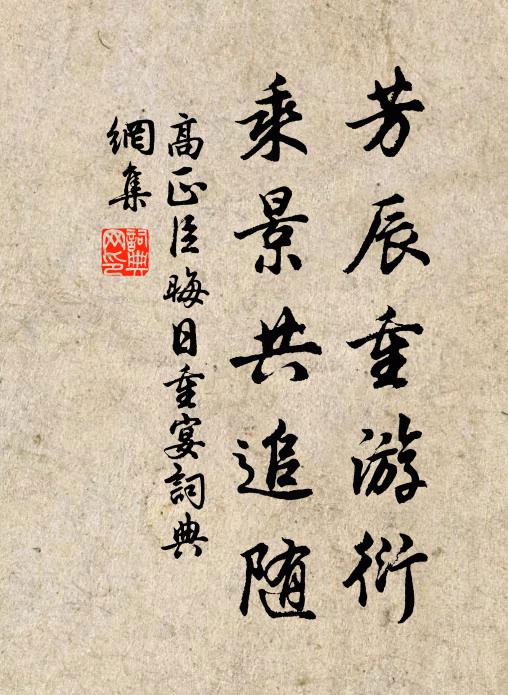 芳辰重游衍
乘景共追随
高正臣晦日重宴詞典
網集
詞典
网印